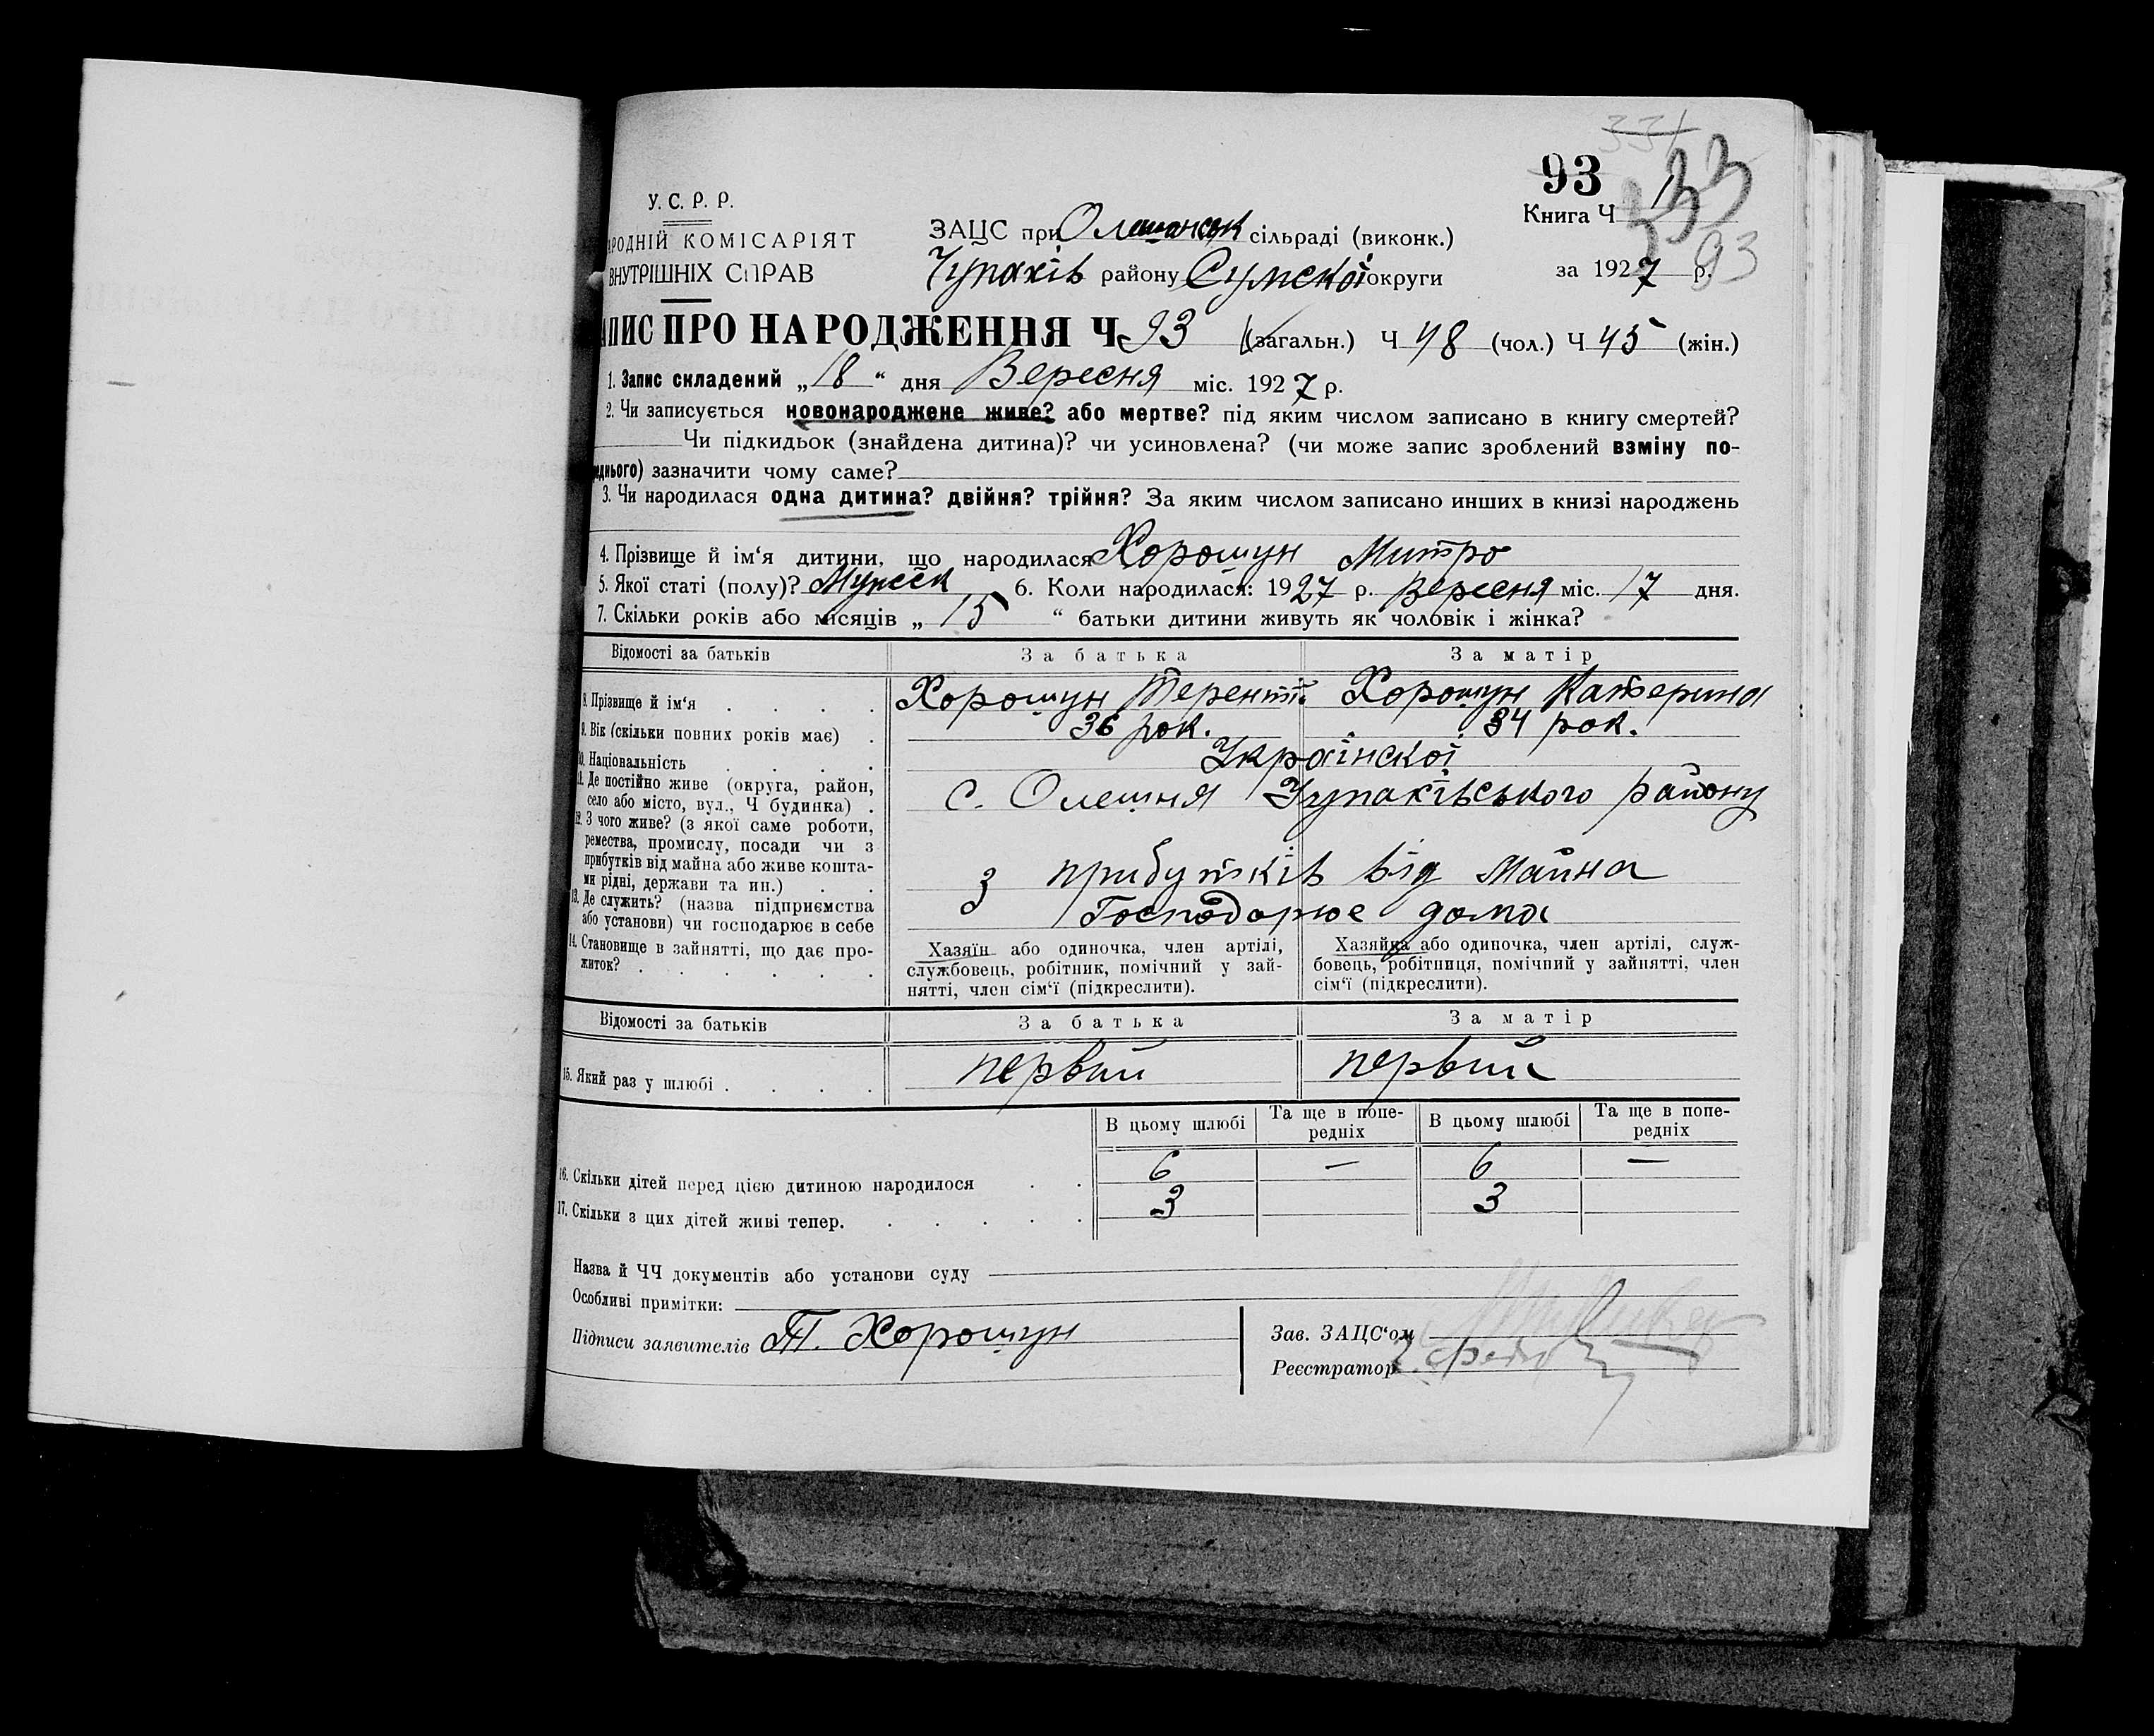 331
93
133
У. С. Р. Р.
Книга Ч
93
АРОДНІЙ КОМІСАРІЯТ
ВНУТРІШНІХ СПРАВ
ЗАЦС при Олешанськ сільраді (виконк.)
Чупахів району Сумської округи
за 1927 р.
АПИС ПРО НАРОДЖЕННЯ Ч 93 (загальн.) Ч 48 (чол.) Ч 45 (жін.)
1. Запис складений „18“ дня Вересня міс. 1927 р.
2. Чи записується новонароджене живе? або мертве? під яким числом записано в книгу смертей?
Чи підкидьок (знайдена дитина)? чи усиновлена? (чи може запис зроблений взміну по-
реднього) зазначити чому саме?
3. Чи народилася одна дитина? двійня? трійня? За яким числом записано инших в книзі народжень
4. Прізвище й ім‘я дитини, що народилася Хорошун Митро
5. Якої статі (полу)? Мужеск 6. Коли народилася: 1927 р. Вересня міс. 17 дня.
7. Скільки років або місяців „ 15 “ батьки дитини живуть як чоловік і жінка?
Відомості за батьків За батька За матір
8. Прізвище й ім‘я . . . . Хорошун Терентій Хорошун Катерина
9. Вік (скільки повних років має) . 36 рок. 34 рок.
10. Національність . . . . Української
11. Де постійно живе (округа, район,
село або місто, вул., Ч будинка) . с. Олешня Чупаківського району
12. З чого живе? (з якої саме роботи,
ремества, промислу, посади чи з
прибутків від майна або живе кошта-
ми рідні, держави та ин.) . . з прибутків від майна
13. Де служить? (назва підприємства
або установи) чи господарює в себе Господарює дома
14. Становище в зайнятті, що дає про-
житок? . . . . . .
Хазяїн або одиночка, член артілі,
службовець, робітник, помічний у зай-
нятті, член сім‘ї (підкреслити).
Хазяйка або одиночка, член артілі, служ-
бовець, робітниця, помічний у зайнятті, член
сім‘ї (підкреслити).
Відомості за батьків За батька За матір
15. Який раз у шлюбі . . . . первий первий
В цьому шлюбі Та ще в попе-
редніх В цьому шлюбі Та ще в попе-
редніх
16. Скільки дітей перед цією дитиною народилося . . 6 — 6 —
17. Скільки з цих дітей живі тепер. . . . . . 3 3
Назва й ЧЧ документів або установи суду
Особливі примітки:
Підписи заявителів Т. Хорошун
Зав. ЗАЦС‘ом
Реєстратор